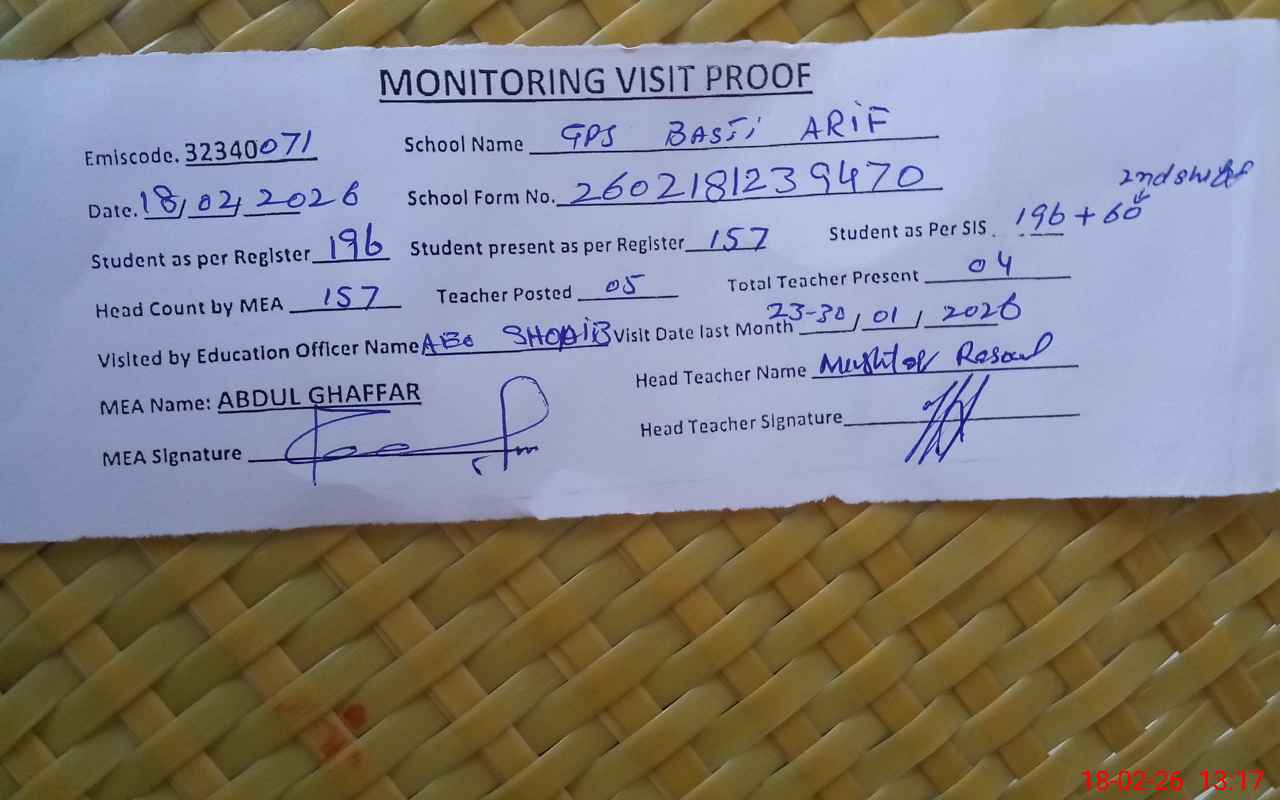 MONITORING VISIT PROOF
Emiscode. 32340071 School Name GPS BASTI ARIF
Date. 18/02/2026 School Form No. 260218123 9470
2nd shift
Student as per Register 196 Student present as per Register 157 Student as Per SIS 196 + 60
Head Count by MEA 157 Teacher Posted 05 Total Teacher Present 04
Visited by Education Officer Name AEO SHOAIB Visit Date last Month 23-30/01/2026
MEA Name: ABDUL GHAFFAR Head Teacher Name Mushtaq Rasool
MEA Signature Head Teacher Signature
18-02-26 13:17